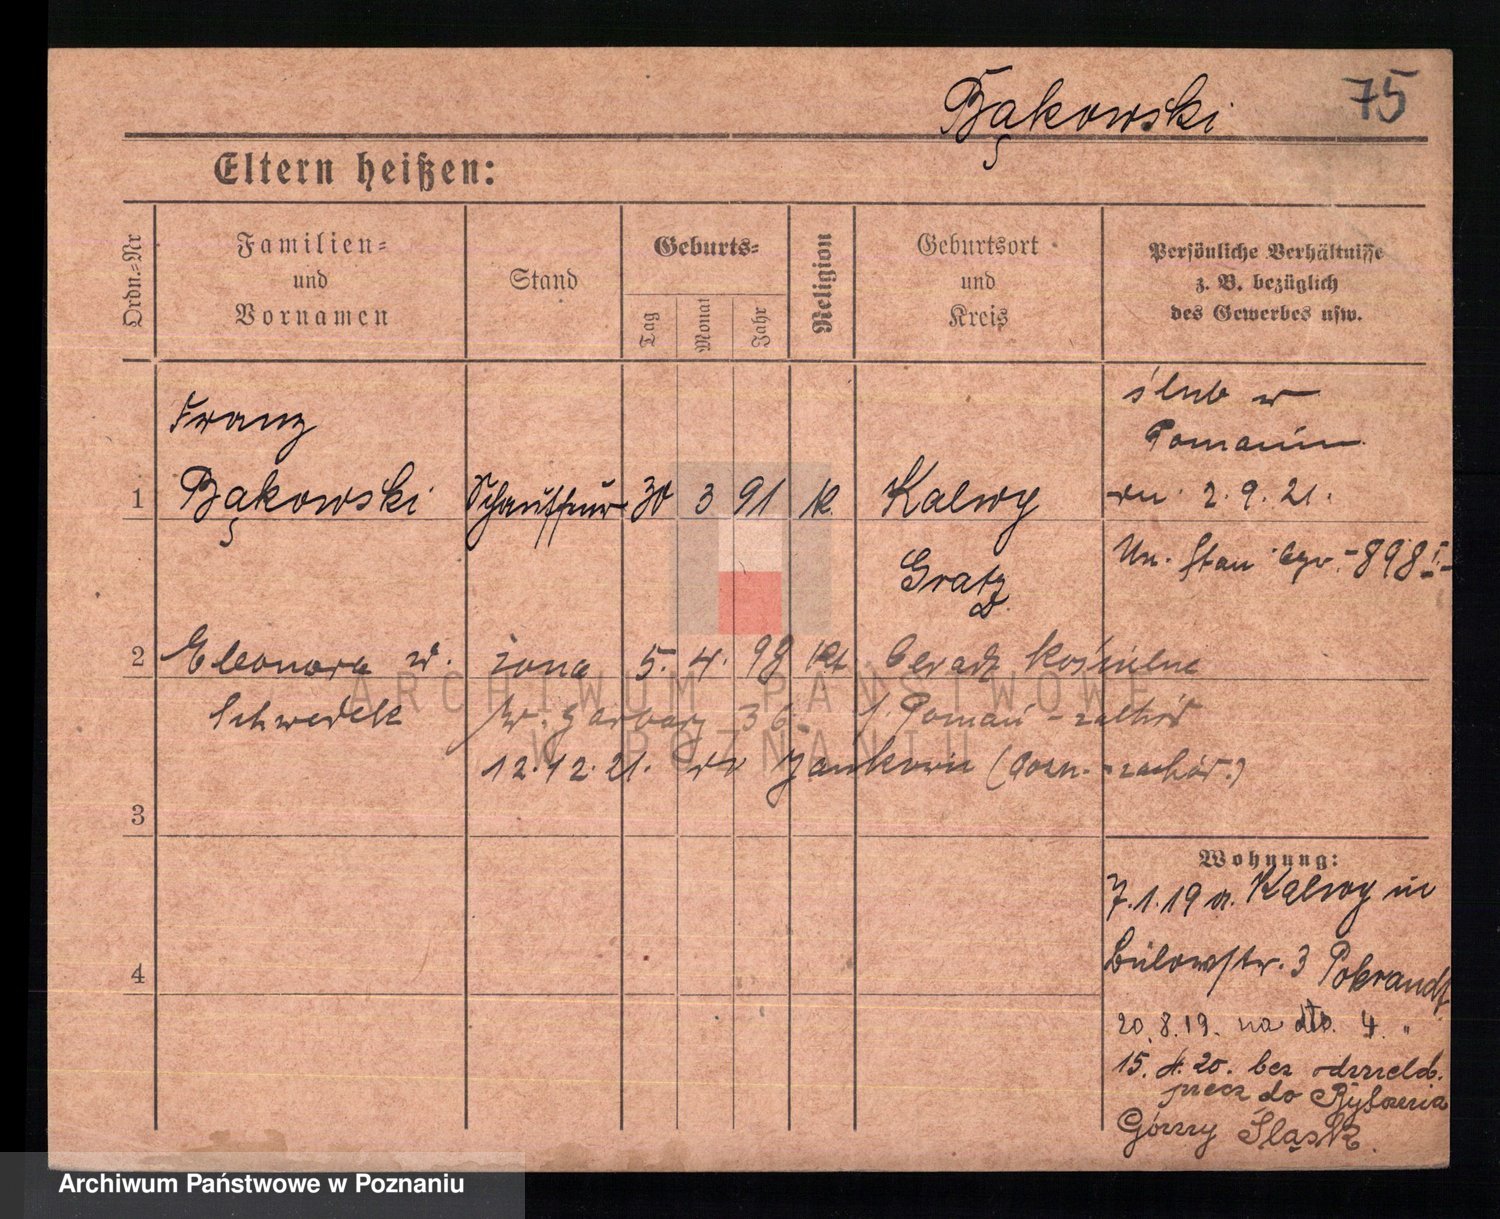 Bąkowski
75
Eltern heißen:
Ordn.=Nr
Familien=
und
Vornamen
Stand
Geburts=
Tag
Monat
Jahr
Religion
Geburtsort
und
Kreis
Persönliche Verhältnisse
z. B. bezüglich
des Gewerbes usw.
ślub w
Franz
Poznaniu
1 Bąkowski Schauffeur 30 3 91 k. Kalwy
dn. 2.9.21.
Grätz
Un. Stan 898 I
2 Eleonora żona 5. 4. 98 kt. Ceradz Kościelne
Schwedek Garbary 36. Poznań-zachód
12.12.21. Jankowic (Pozn.-zachód.)
3
Wohnung:
7.1.19 a. Kalwy in
Bülowstr. 3 Pobrandt
4
20.8.19. na dto. 4. "
15.4.20. bez odmeld.
precz do
Górny Śląsk.
ARCHIWUM PAŃSTWOWE
W POZNANIU
Archiwum Państwowe w Poznaniu